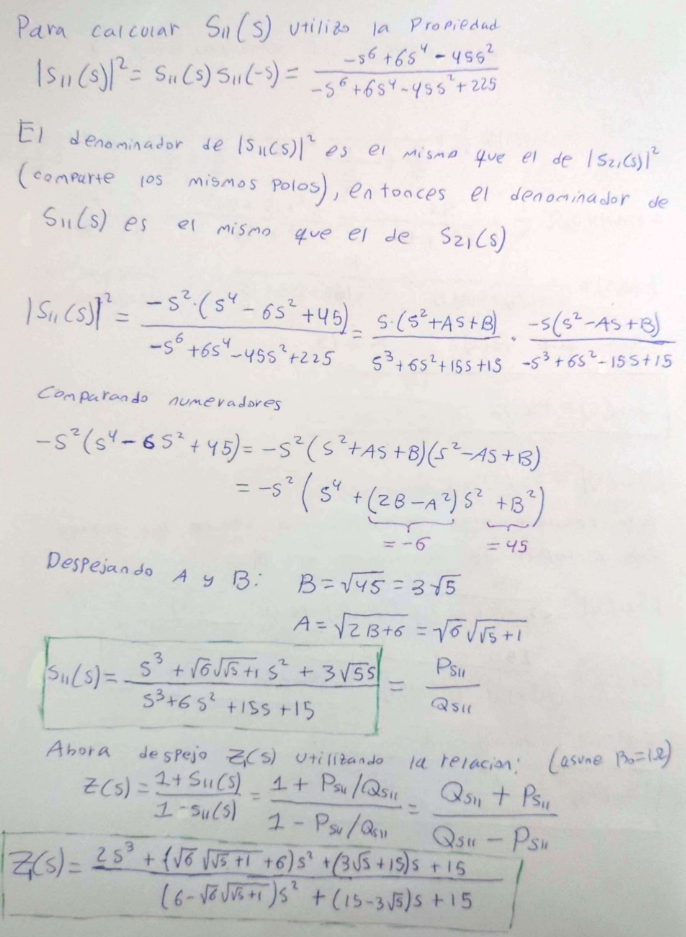 Para calcular S11(s) utilizo la Propiedad
|S11(s)|² = S11(s) S11(-s) = (-s⁶+6s⁴-45s²)/(-s⁶+6s⁴-45s²+225)
El denominador de |S11(s)|² es el mismo que el de |S21(s)|²
(comparte los mismos polos), entonces el denominador de
S11(s) es el mismo que el de S21(s)
|S11(s)|² = (-s²·(s⁴-6s²+45))/(-s⁶+6s⁴-45s²+225) = (s·(s²+As+B))/(s³+6s²+15s+15) · (-s(s²-As+B))/(-s³+6s²-15s+15)
Comparando numeradores
-s²(s⁴-6s²+45) = -s²(s²+As+B)(s²-As+B)
= -s²(s⁴+(2B-A²)s²+B²)
=-6 =45
Despejando A y B: B=√45=3√5
A=√(2B+6)=√6√(√5+1)
S11(s) = (s³+√6√(√5+1) s²+3√5s)/(s³+6s²+15s+15) = PS11/QS11
Ahora despejo Z1(s) utilizando la relacion: (asume R0=1Ω)
Z(s) = (1+S11(s))/(1-S11(s)) = (1+PS11/QS11)/(1-PS11/QS11) = (QS11+PS11)/(QS11-PS11)
Z1(s) = (2s³+(√6√(√5+1)+6)s²+(3√5+15)s+15)/((6-√6√(√5+1))s²+(15-3√5)s+15)